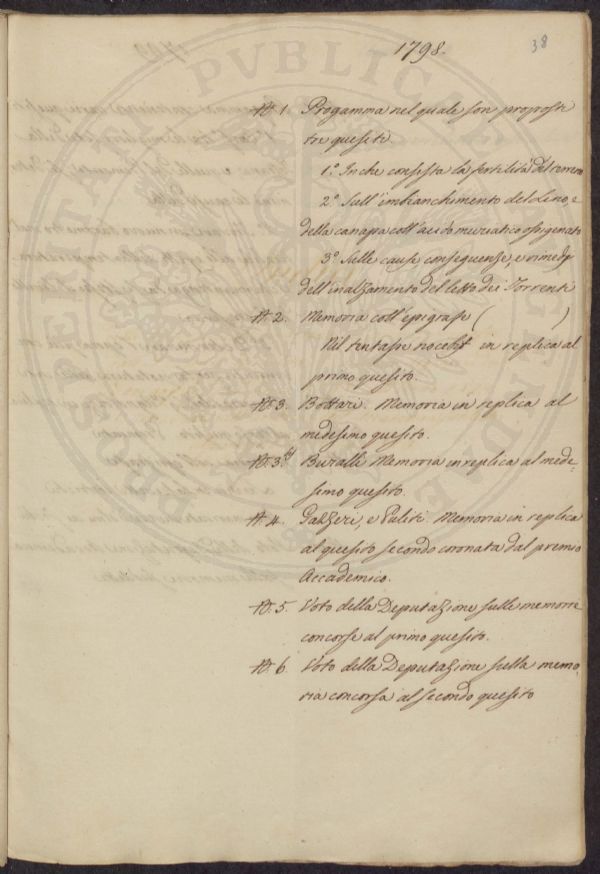 1798.
38
N. 1. Progamma nel quale son proposti
tre quesiti.
1.° In che consista la fertilità del terreno
2.° Sull'imbianchimento del Lino, e
della canapa coll'acido muriatico ossigenato
3.° Sulle cause conseguenze, e rimedj
dell'inalzamento del letto dei Torrenti
N. 2. Memoria coll'epigrafe ( )
Nil tentasse nocebit in replica al
primo quesito.
N. 3. Bottari. Memoria in replica al
medesimo quesito.
N. 3. bis Buralli Memoria in replica al mede-
simo quesito.
N. 4. Gazzeri, e Puliti. Memoria in replica
al quesito secondo coronata dal premio
Accademico.
N. 5. Voto della Deputazione sulle memorie
concorse al primo quesito.
N. 6. Voto della Deputazione sulla memo-
ria concorsa al secondo quesito